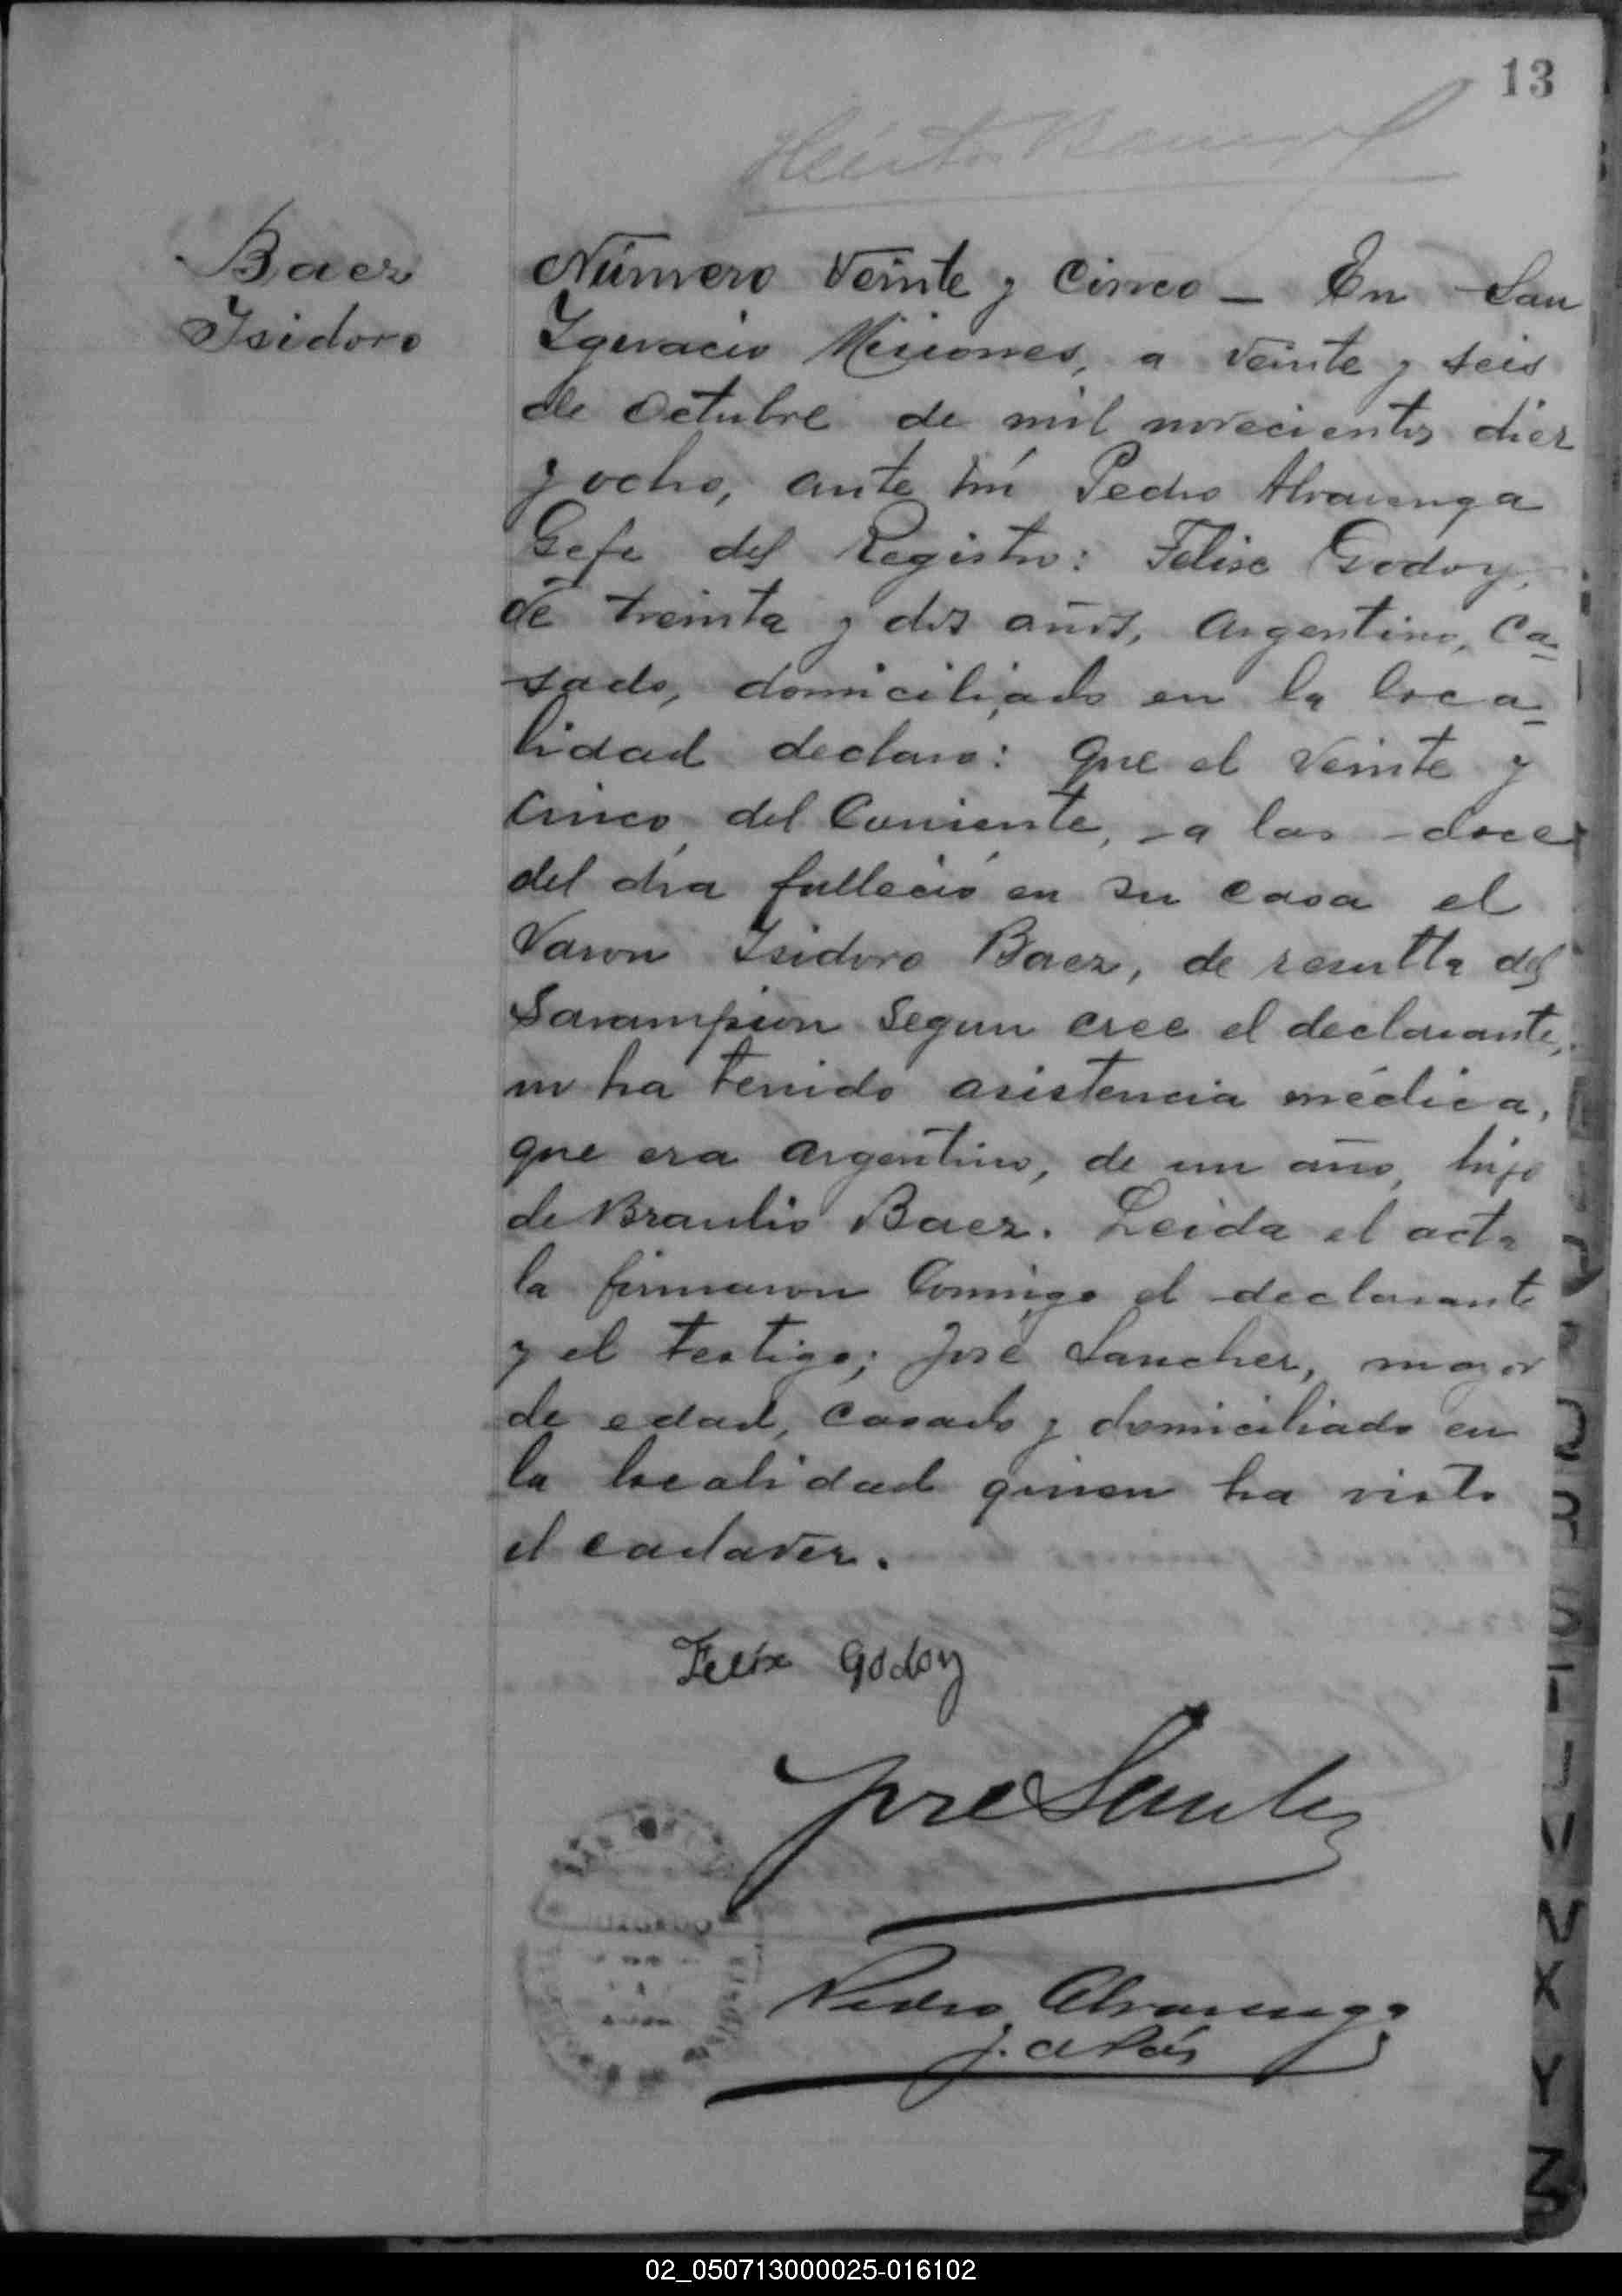 13
Baez
Isidoro
Número Veinte y Cinco — En San
Ignacio Misiones, a veinte y seis
de Octubre de mil novecientos diez
y ocho, ante mí Pedro Alvarenga
Gefe del Registro: Felise Godoy,
de treinta y dos años, Argentino, Ca=
sado, domiciliado en la loca=
lidad declaro: que el veinte y
cinco del Corriente, a las doce
del día falleció en su casa el
Varon Isidoro Baez, de resulta del
Sarampion Segun cree el declarante,
no ha tenido asistencia médica,
que era argentino, de un año, hijo
de Braulio Baez. Leida el acta
la firmaron Conmigo el declarante
y el testigo; José Sanchez, mayor
de edad, casado y domiciliado en
la localidad quien ha visto
el cadaver.
Felix Godoy
José Sanchez
Pedro Alvarenga
J. de Paz
A
B
C
D
E
F
U
V
X
Y
Z
02_050713000025-016102